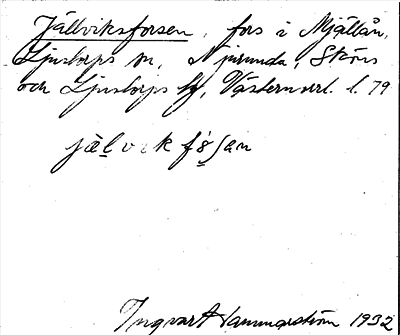 Jällviksforsen, fors i Mjällån,
Ljustorps sn, Njurunda, Sköns
och Ljustorps hd, Västernorrl. l. 79
jälvikfösan
Ingvart Hammarström 1932